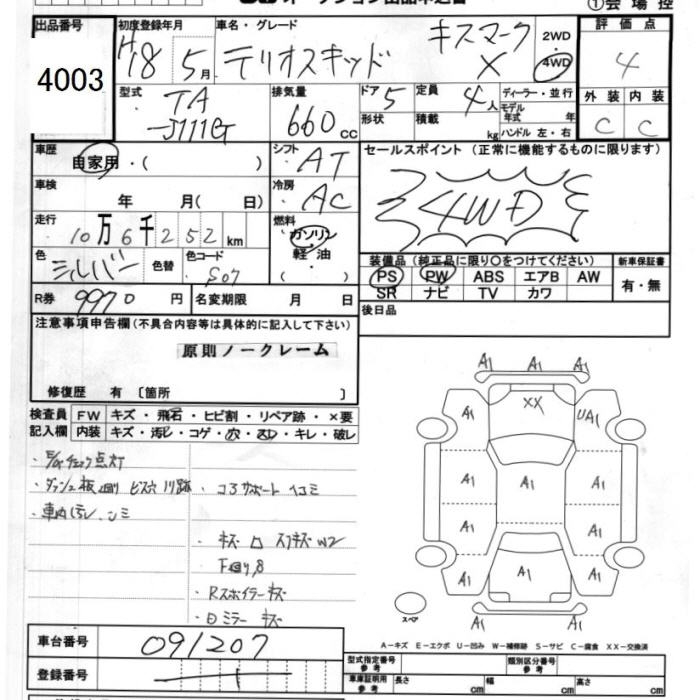 ①会場控
出品番号 初度登録年月 車名・グレード 2WD 評価点
4003 H18 5月 テリオスキッド キスマークX 4WD 4
型式 TA-J111G 排気量 660cc ドア 5 定員 4人 ディーラー・並行 外装 内装
形状 積載 kg モデル年式 年 ハンドル 左・右 C C
車歴 自家用・( ) シフト AT セールスポイント(正常に機能するものに限ります)
車検 年 月( 日) 冷房 AC 4WD
走行 10万6千252km 燃料 ガソリン・軽油 ( )
色 シルバー 色替 色コード S07 装備品(純正品に限り○をつけてください) 新車保証書
PS PW ABS エアB AW 有・無
SR ナビ TV カワ
R券 9970円 名変期限 月 日 後日品
注意事項申告欄(不具合内容等は具体的に記入して下さい)
原則ノークレーム
修復歴 有 〔箇所 〕
検査員 FW キズ・飛石・ヒビ割・リペア跡・×要
記入欄 内装 キズ・汚レ・コゲ・穴・スレ・キレ・破レ
・E/Gチェック点灯
・ダッシュ板 ビス穴 跡 ・コアサポートヘコミ
・車内汚レ、シミ
・キズ ロ スリキズ W2
・Rスポイラーキズ
・ミラーキズ
A1 A1 A1
A1 XX UA1
A1 A1 A1
A1 A1
A1 A1 A1
A1 A1
スペア
A－キズ E－エクボ U－凹み W－補修跡 S－サビ C－腐食 XX－交換済
車台番号 091207
登録番号
型式指定番号 参考 類別区分番号 参考
車庫証明用 参考 長さ cm 幅 cm 高さ cm